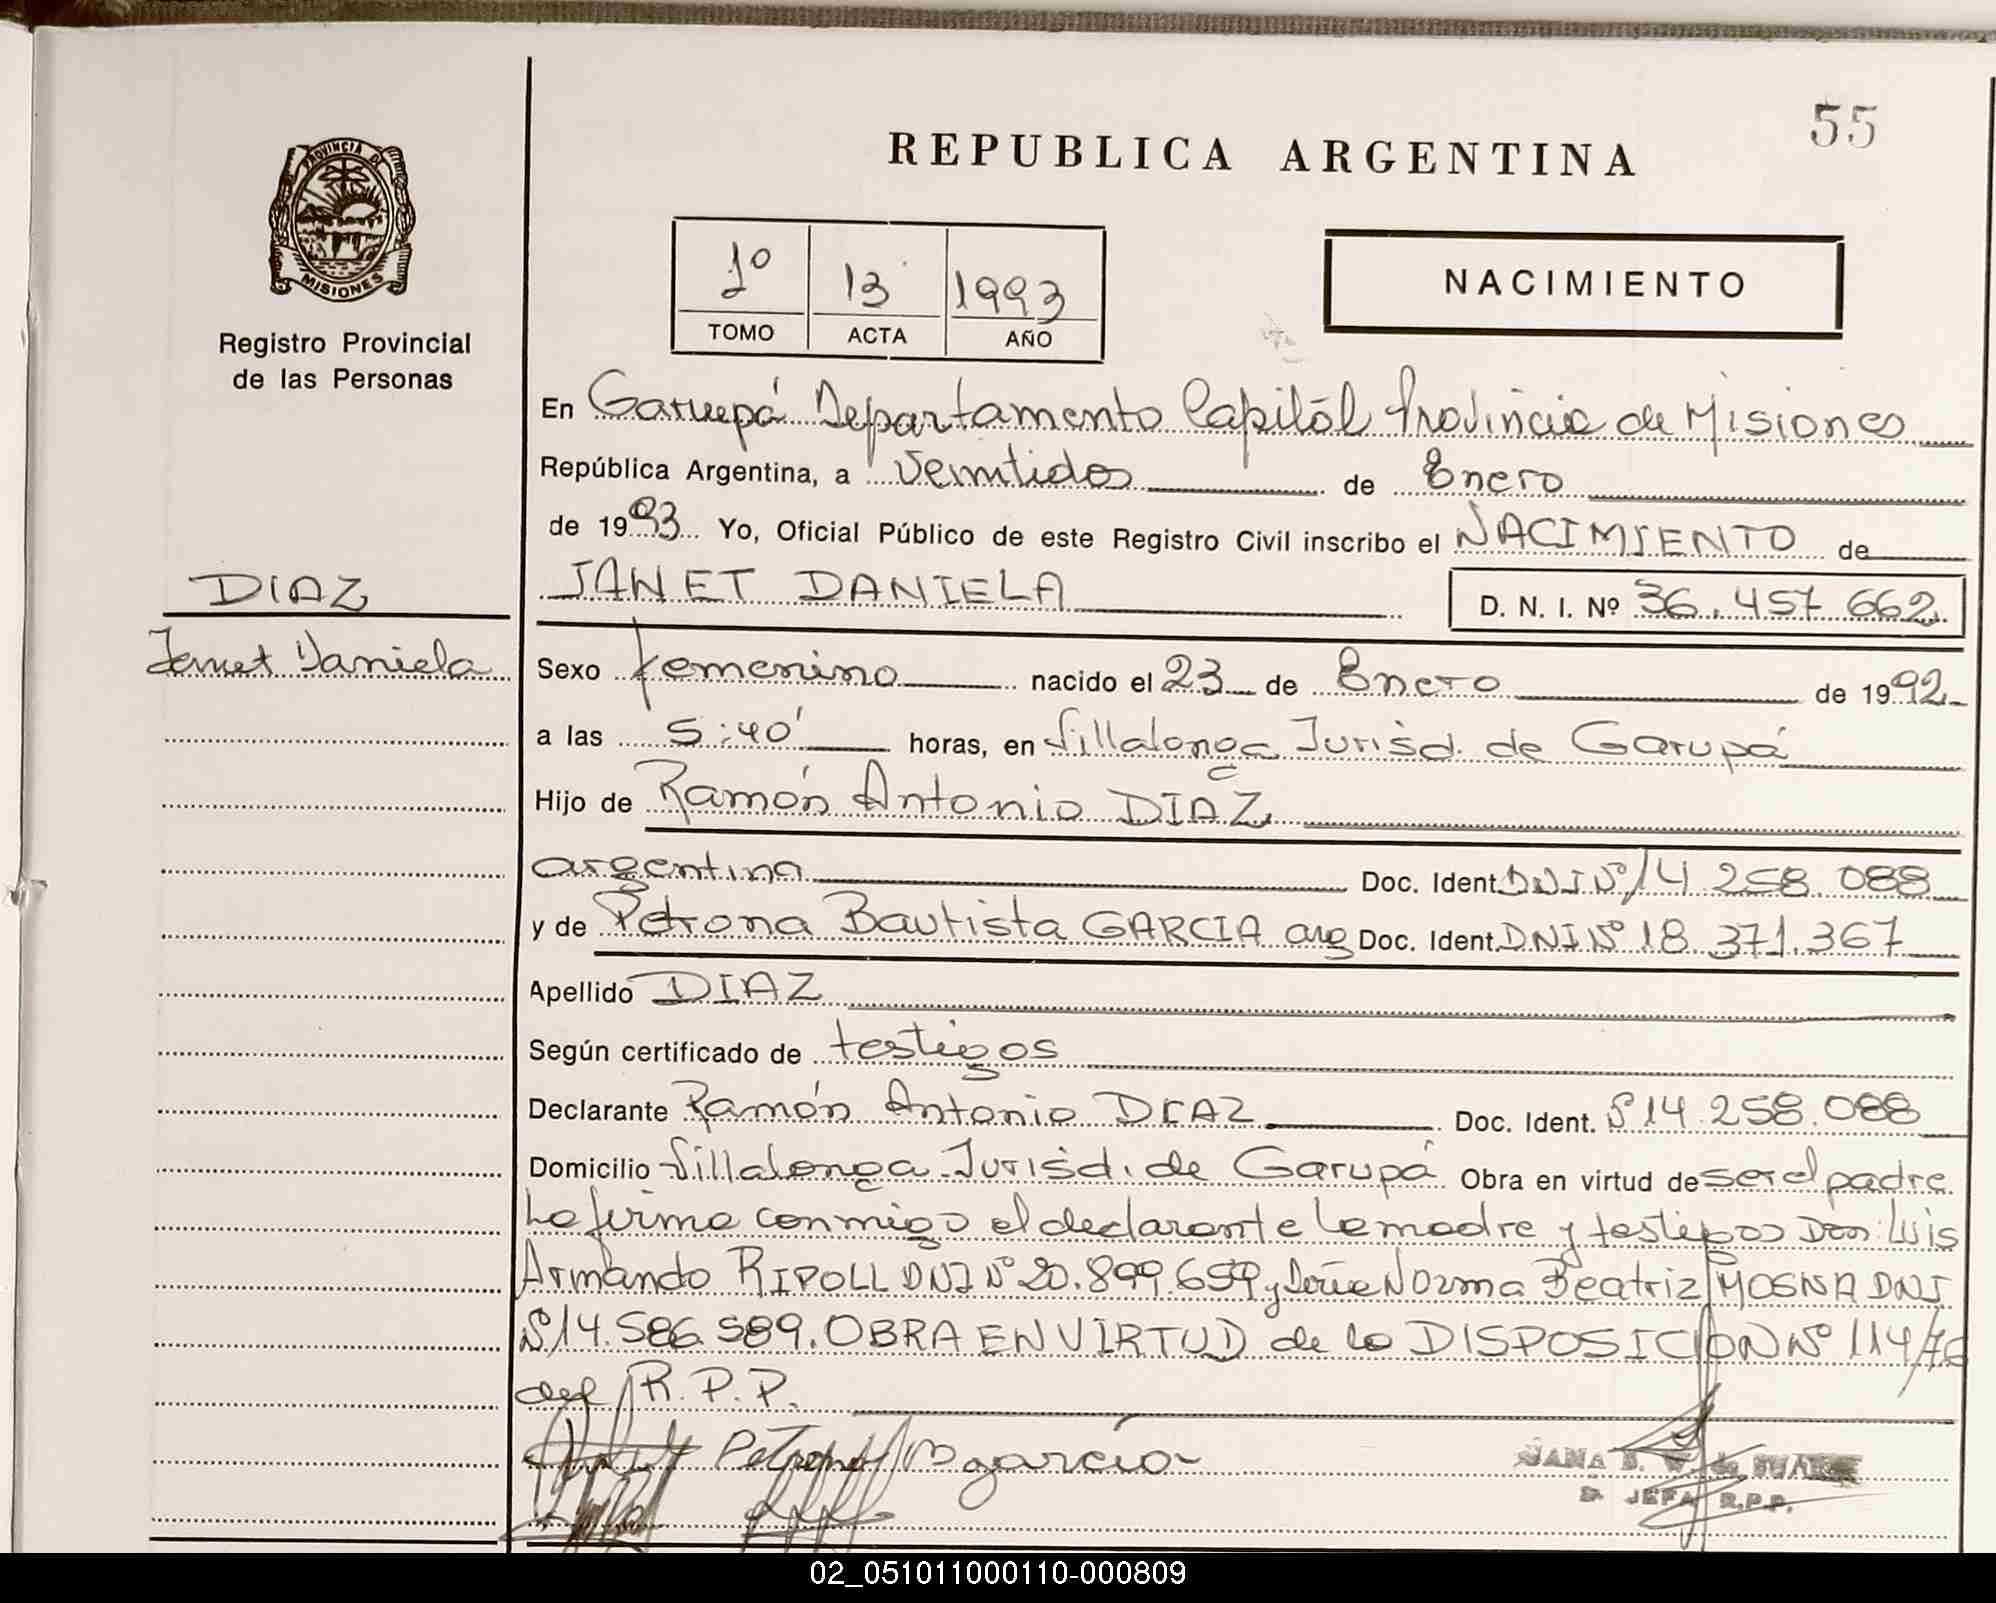 55
REPUBLICA ARGENTINA
PROVINCIA DE
MISIONES
Registro Provincial
de las Personas
1º 13 1993
TOMO ACTA AÑO
NACIMIENTO
En Garupá Departamento Capitál Provincia de Misiones
República Argentina, a Veintidos de Enero
de 1993 Yo, Oficial Público de este Registro Civil inscribo el NACIMIENTO de
DIAZ
JANET DANIELA D. N. I. Nº 36.457.662
Janet Daniela
Sexo femenino nacido el 23 de Enero de 1992
a las 5:40' horas, en Villalonga Jurisd. de Garupá
Hijo de Ramón Antonio DIAZ
argentina Doc. Ident. DNI Nº 14.258.088
y de Petrona Bautista GARCIA arg Doc. Ident. DNI Nº 18.371.367
Apellido DIAZ
Según certificado de testigos
Declarante Ramón Antonio DIAZ Doc. Ident. Nº 14.258.088
Domicilio Villalonga Jurisd. de Garupá Obra en virtud de ser el padre
La firma conmigo el declarante la madre y testigos Don: Luis
Armando RIPOLL DNI Nº 20.899.659 y doña Norma Beatriz MOSNA DNI
Nº 14.586.589. OBRA EN VIRTUD de la DISPOSICION Nº 114/76
del R.P.P.
Petrona B garcia
JEFA R.P.P.
02_051011000110-000809